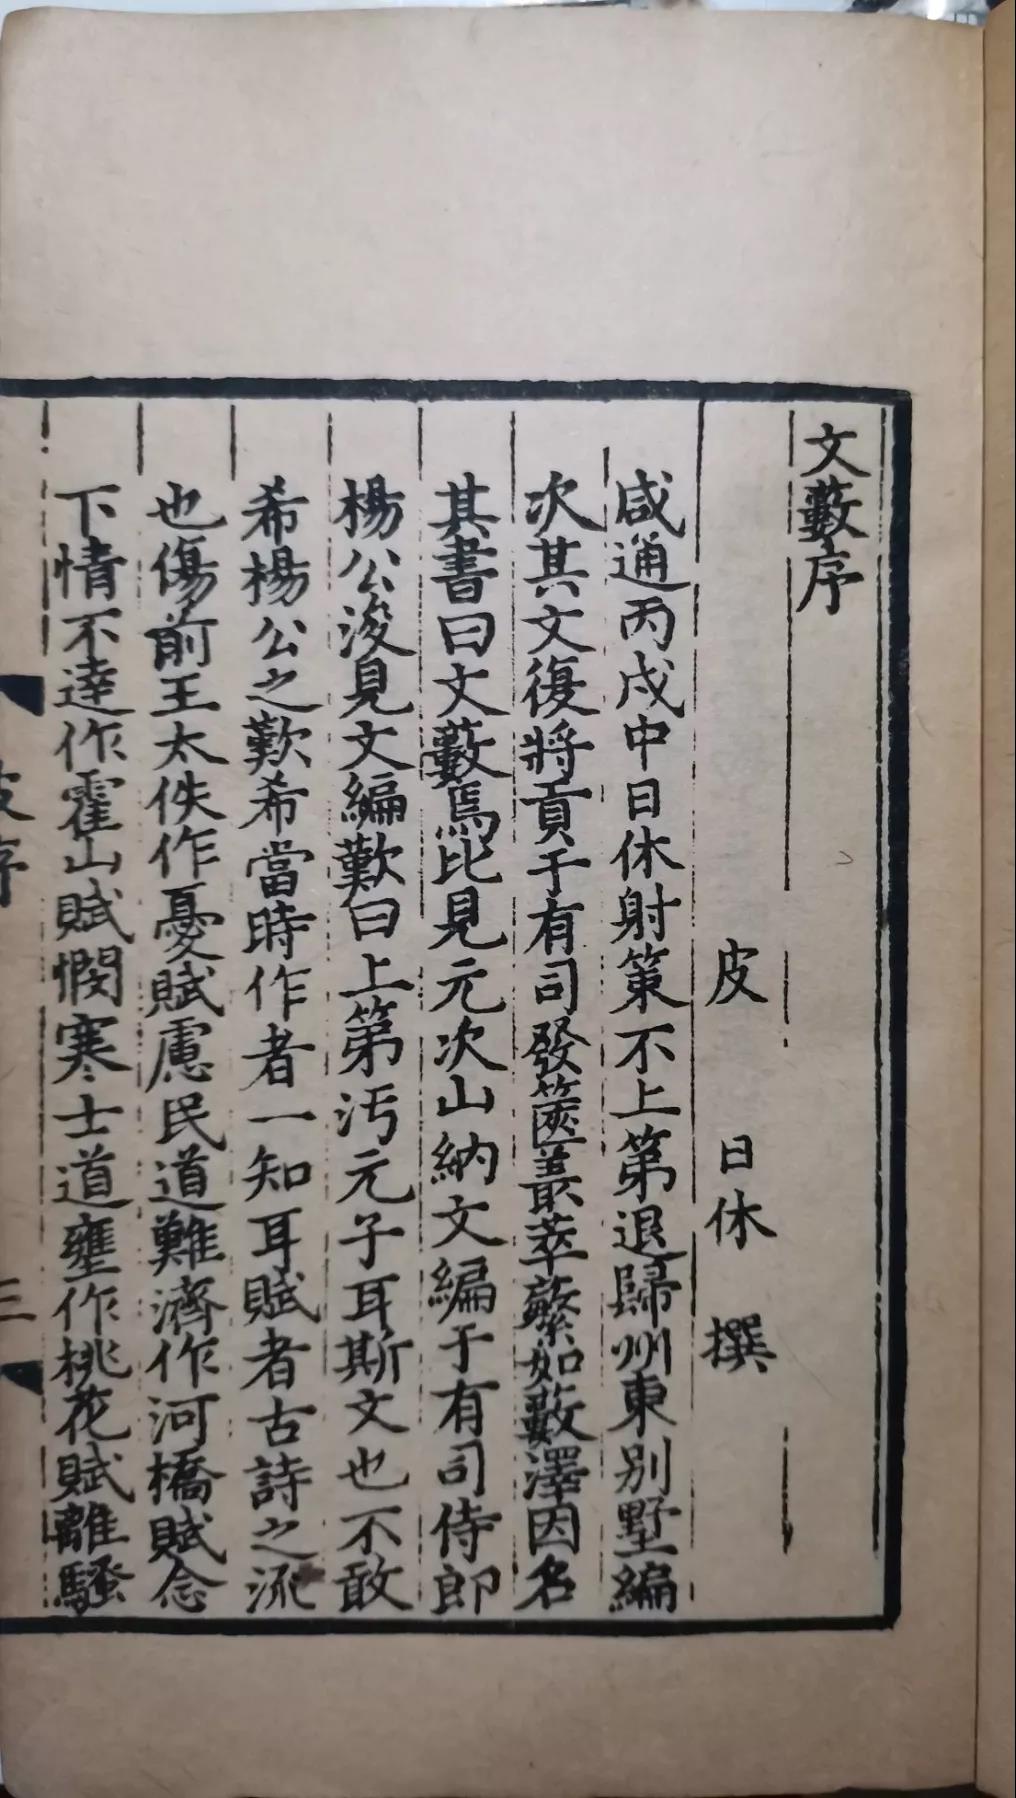 文藪序
皮日休撰
咸通丙戌中日休射策不上第退歸州東別墅編
次其文復將貢于有司發篋叢萃繁如藪澤因名
其書曰文藪焉比見元次山納文編于有司侍郎
楊公浚見文編歎曰上第汚元子耳斯文也不敢
希楊公之歎希當時作者一知耳賦者古詩之流
也傷前王太佚作憂賦慮民道難濟作河橋賦念
下情不達作霍山賦憫寒士道壅作桃花賦離騷
皮序
三